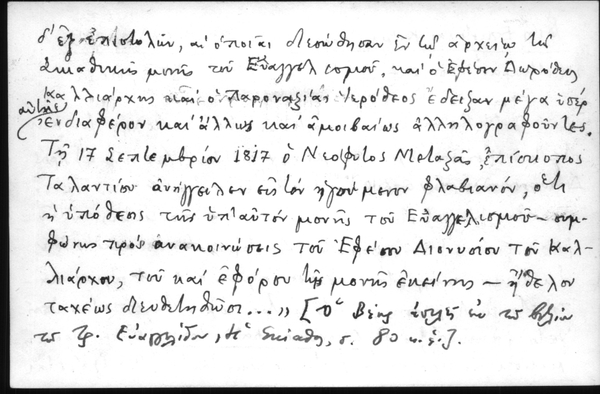 δ' ἐξ ἐπιστολῶν, αἱ ὁποῖαι διεσώθησαν ἐν τῷ ἀρχείῳ τῆς
μονῆς τοῦ Εὐαγγελισμοῦ, καὶ ὁ Ἐφέσου Διονύσιος
Καλλιάρχης καὶ ὁ Παροναξίας Ἱερόθεος ἔδειξαν μέγα ὑπὲρ
αὐτῆς
ἐνδιαφέρον καὶ ἄλλως καὶ ἀμοιβαίως ἀλληλογραφοῦντες.
Τῇ 17 Σεπτεμβρίου 1817 ὁ Νεόφυτος Μεταξᾶς, ἐπίσκοπος
Ταλαντίου ἀνήγγειλεν εἰς τὸν ἡγούμενον Φλαβιανόν, ὅτι
ἡ ὑπόθεσις τῆς ὑπ' αὐτὸν μονῆς τοῦ Εὐαγγελισμοῦ – συμ-
φώνως πρὸς ἀνακοινώσεις τοῦ Ἐφέσου Διονυσίου τοῦ Καλ-
λιάρχου, τοῦ καὶ ἐφόρου τῆς μονῆς ἐκείνης – ἤθελον
ταχέως διευθετηθῶσι...» [Ὁ Βέης ἐν τῷ βιβλίῳ
τοῦ Τρ. Εὐαγγελίδου, Ἡ Σκίαθος, σ. 80 κ.ἑ.].